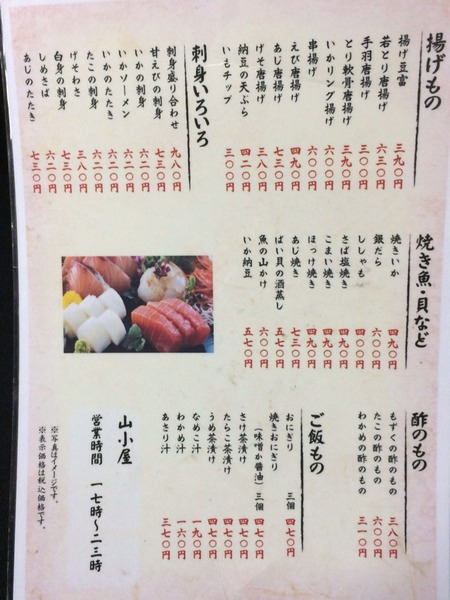 揚げもの
揚げ豆富 三九〇円
若とり唐揚げ 六三〇円
手羽唐揚げ 三〇〇円
とり軟骨唐揚げ 三九〇円
いかリング揚げ 六〇〇円
串揚げ 六〇〇円
えび唐揚げ 四九〇円
あじ唐揚げ 七三〇円
げそ唐揚げ 三八〇円
納豆の天ぷら 四二〇円
いもチップ 三〇〇円
刺身いろいろ
刺身盛り合わせ 九八〇円
甘えびの刺身 七三〇円
いかの刺身 六二〇円
いかソーメン 六二〇円
いかのたたき 六二〇円
たこの刺身 六二〇円
げそわさ 三八〇円
白身の刺身 七三〇円
しめさば 六二〇円
あじのたたき 七三〇円
焼き魚・貝など
焼きいか 四九〇円
銀だら 六〇〇円
ししゃも 四〇〇円
さば塩焼き 四九〇円
こまい焼き 四九〇円
ほっけ焼き 四九〇円
あじ焼き 七三〇円
ばい貝の酒蒸し 五七〇円
魚の山かけ 六〇〇円
いか納豆 五七〇円
酢のもの
もずくの酢のもの 三八〇円
たこの酢のもの 六〇〇円
わかめの酢のもの 三一〇円
ご飯もの
おにぎり 三個 四七〇円
焼きおにぎり
(味噌か醤油) 三個 四七〇円
さけ茶漬け 四七〇円
たらこ茶漬け 四七〇円
うめ茶漬け 四七〇円
なめこ汁 一九〇円
わかめ汁 一六〇円
あさり汁 三七〇円
山小屋
営業時間 一七時〜二三時
※写真はイメージです。
※表示価格は税込価格です。